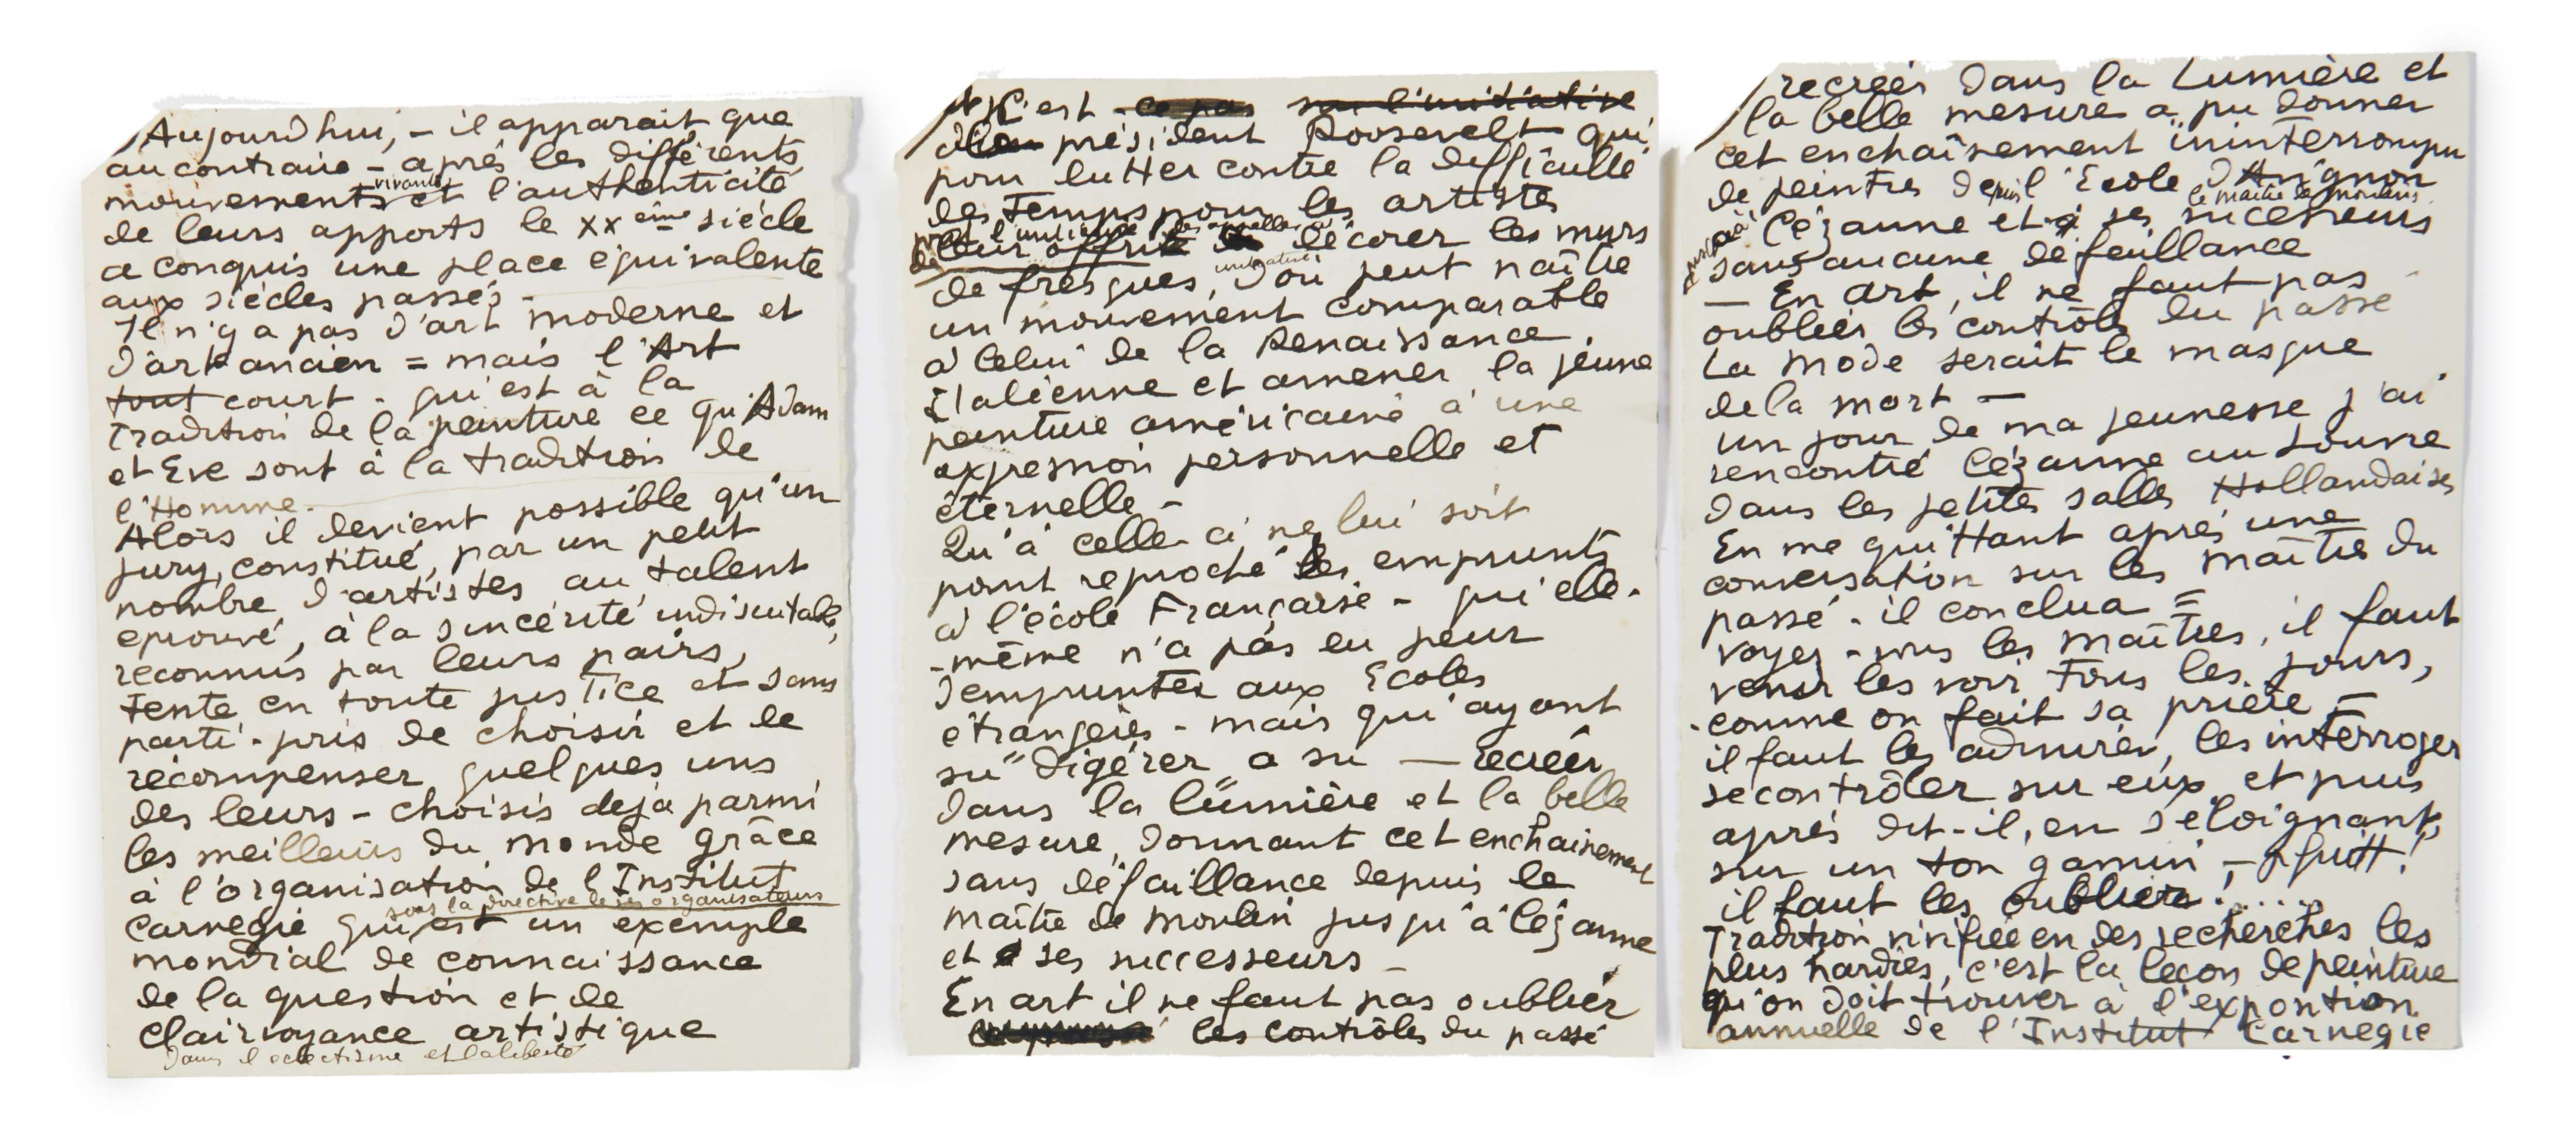 Aujourd hui, - il apparait que
au contraire - après les différents
mouvements vivants et l'authenticité
de leurs apports le XX ème siècle
a conquis une place équivalente
aux siècles passés -
Il n'y a pas d'art moderne et
d'art ancien = mais l'Art
tout court - qui est à la
Tradition de la peinture ce qu'Adam
et Eve sont à la tradition de
l'Homme -
Alors il devient possible qu'un
jury, constitué, par un petit
nombre d'artistes au talent
eprouvé, à la sincérité indiscutable,
reconnus par leurs pairs,
tente en toute justice et sans
parti-pris de choisir et de
récompenser quelques uns
des leurs - choisis deja parmi
les meilleurs du monde grâce
à l'organisation de l'Institut
sous la directive de ses organisateurs
Carnegie qui est un exemple
mondial de connaissance
de la question et de
clairvoyance artistique
dans l eclectisme et la liberté
C'est ce pas sur l'initiative
président Roosevelt qui
pour lutter contre la difficulté
des Temps pour les artistes
leur offrit décorer les murs
de fresques, d'où peut naître
un mouvement comparable
à celui de la Renaissance
Italienne et amener la jeune
peinture américaine à une
expression personnelle et
éternelle -
Qu'à celle-ci ne lui soit
point reproché les emprunts
à l'école Française - qui elle-
-même n'a pas eu peur
d'emprunter aux Ecoles
étrangères - mais qui ayant
su digérer a su — recréer
dans la lumière et la belle
mesure, donnant cet enchainement
sans défaillance depuis le
maître de moulin jusqu'à Cézanne
et ses successeurs -
En art il ne faut pas oublier
les contrôles du passé
recréés dans la Lumière et
la belle mesure a pu donner
cet enchaînement ininterrompu
de peintres depuis l'Ecole d'Avignon
le maître de moulins
jusqu'à Cézanne et ses successeurs
sans aucune défaillance
— En art, il ne faut pas
oublier les contrôles du passé
La mode serait le masque
de la mort —
un jour de ma jeunesse j'ai
rencontré Cézanne au Louvre
dans les petites salles Hollandaises
En me quittant après une
conversation sur les maîtres du
passé - il conclua =
voyez-vous les maîtres, il faut
venir les voir Tous les jours,
comme on fait sa prière -
il faut les admirer, les interroger
se contrôler sur eux et puis
après dit-il, en s'éloignant,
sur un ton gamin - pfuitt!
il faut les oublier! .....
Tradition vivifiée en des recherches les
plus hardies, c'est la leçon de peinture
qu'on doit trouver à l'exposition
annuelle de l'Institut Carnegie